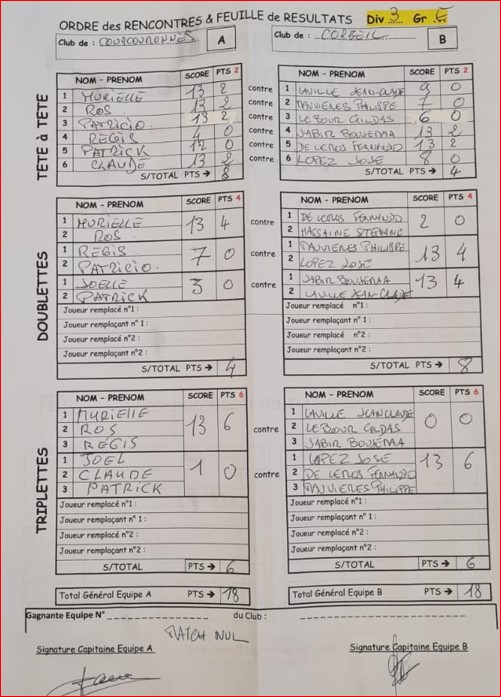 ORDRE des RENCONTRES & FEUILLE de RESULTATS Div 3 Gr E
Club de : COURCOURONNES A Club de : CORBEIL B
TETE à TETE
NOM - PRENOM SCORE PTS 2 NOM - PRENOM SCORE PTS 2
1 MURIELLE 13 2 contre 1 LAVILLE JEAN-CLAUDE 9 0
2 ROS 13 2 contre 2 TANVIERES PHILIPPE 7 0
3 PATRICIO. 13 2 contre 3 LE BOUR GILDAS 6 0
4 REGIS 4 0 contre 4 JABIR BOUJEMAA 13 2
5 PATRICK 12 0 contre 5 DE LEMOS FERNANDO 13 2
6 CLAUDE 13 2 contre 6 LOPEZ JOSE 8 0
S/TOTAL PTS → 8 S/TOTAL PTS → 4
DOUBLETTES
NOM - PRENOM SCORE PTS 4 NOM - PRENOM SCORE PTS 4
1 MURIELLE 13 4 contre 1 DE LEMOS FERNANDO 2 0
2 ROS 2 HASSAINE
1 REGIS 7 0 contre 1 TANVIERES PHILIPPE 13 4
2 PATRICIO. 2 LOPEZ JOSE
1 JOELLE 3 0 contre 1 JABIR BOUJEMAA 13 4
2 PATRICK 2 LAVILLE JEAN-CLAUDE
Joueur remplacé n°1 : Joueur remplacé n°1 :
Joueur remplaçant n°1 : Joueur remplaçant n°1 :
Joueur remplacé n°2 : Joueur remplacé n°2 :
Joueur remplaçant n°2 : Joueur remplaçant n°2 :
S/TOTAL PTS → 4 S/TOTAL PTS → 8
TRIPLETTES
NOM - PRENOM SCORE PTS 6 NOM - PRENOM SCORE PTS 6
1 MURIELLE 1 LAVILLE JEAN CLAUDE
2 ROS 13 6 contre 2 LE BOUR GILDAS 0 0
3 REGIS 3 JABIR BOUJEMAA
1 JOEL 1 LOPEZ JOSE
2 CLAUDE 1 0 contre 2 DE LEMOS FERNANDO 13 6
3 PATRICK 3 TANVIERES PHILIPPE
Joueur remplacé n°1 : Joueur remplacé n°1 :
Joueur remplaçant n°1 : Joueur remplaçant n°1 :
Joueur remplacé n°2 : Joueur remplacé n°2 :
Joueur remplaçant n°2 : Joueur remplaçant n°2 :
S/TOTAL PTS → 6 S/TOTAL PTS → 6
Total Général Equipe A PTS → 18 Total Général Equipe B PTS → 18
Gagnante Equipe N° du Club :
MATCH NUL
Signature Capitaine Equipe A Signature Capitaine Equipe B